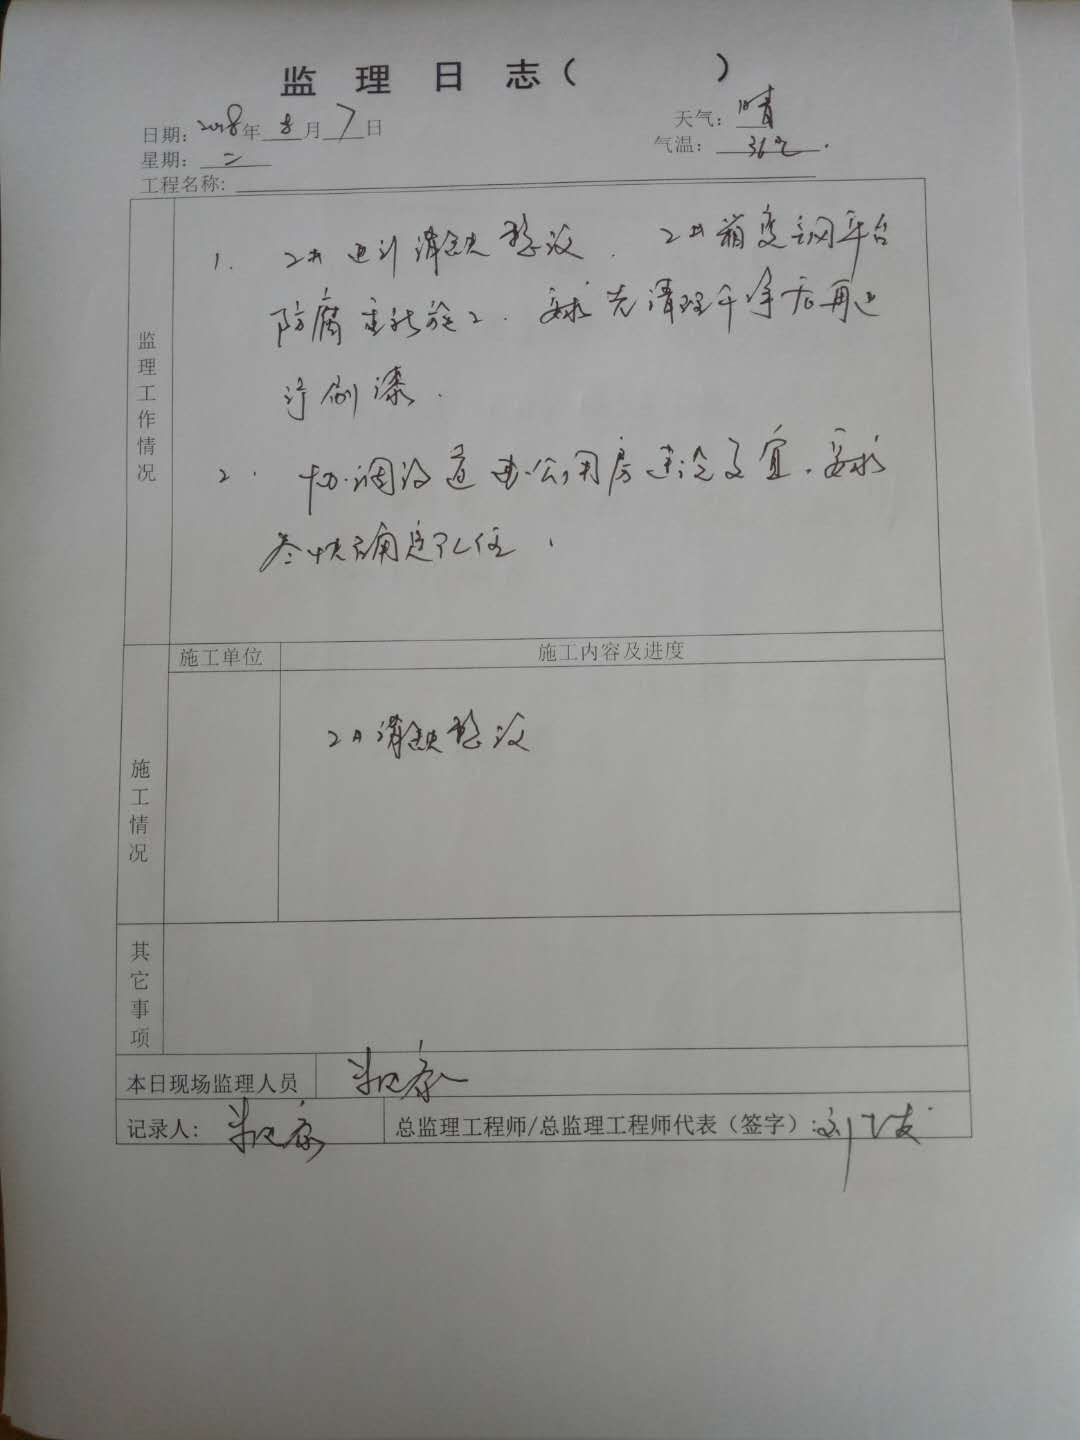 监 理 日 志 (          )
日期: 2018年 8 月 7 日
天气: 晴
星期: 二
气温: 36℃.
工程名称:
监理工作情况
1. 2# 进行消缺整改. 2#箱变钢平台
防腐重新施工. 要求先清理干净后再进
行刷漆.
2. 协调 公用房建设事宜. 要求
尽快确定 位.
施工单位
施工内容及进度
施工情况
2#消缺整改
其它事项
本日现场监理人员
记录人:
总监理工程师/总监理工程师代表（签字）: 刘